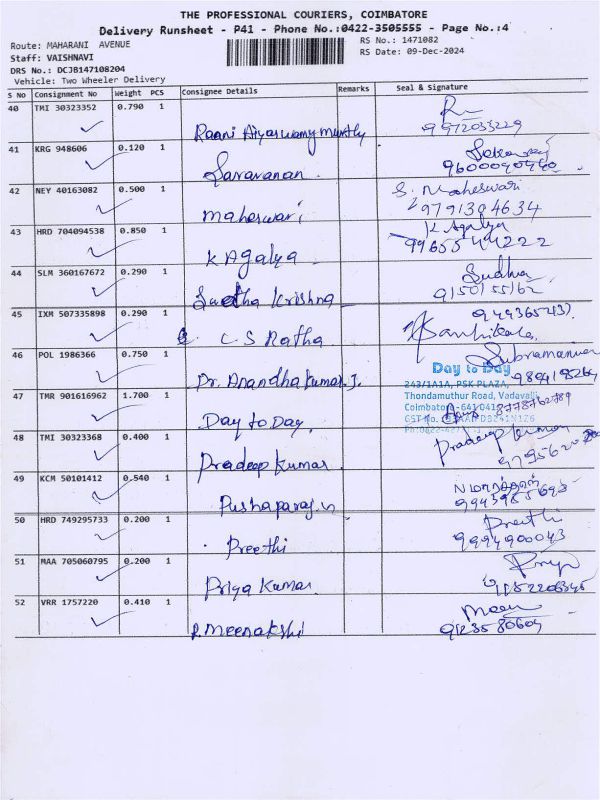 THE PROFESSIONAL COURIERS, COIMBATORE
Delivery Runsheet - P41 - Phone No.:0422-3505555 - Page No.:4
Route: MAHARANI AVENUE RS No.: 1471082
Staff: VAISHNAVI RS Date: 09-Dec-2024
DRS No.: DCJB147108204
Vehicle: Two Wheeler Delivery
S No Consignment No Weight PCS Consignee Details Remarks Seal & Signature
40 TMI 30323352 0.790 1
Raani Aiyaswamy murthy 9972033229
41 KRG 948606 0.120 1
Saravanan. 9600090440
42 NEY 40163082 0.500 1 S. Maheswari
maheswari 9791304634
43 HRD 704094538 0.850 1 K Agalya
K Agalya 9965544222
44 SLM 360167672 0.290 1 Sudha
Sudha Krishna 9150155162
45 IXM 507335898 0.290 1
C S Ratha
46 POL 1986366 0.750 1 Subramanian
Dr. Anandha Kumar. J. Day to Day
243/1A1A, PSK PLAZA,
47 TMR 901616962 1.700 1 Thondamuthur Road, Vadavalli
Day to Day. Coimbatore - 641 041
48 TMI 30323368 0.400 1 Pradeep Kumar
Pradeep Kumar
49 KCM 50101412 0.540 1
Pushaparaj. n
50 HRD 749295733 0.200 1 Preethi
Preethi 9994900043
51 MAA 705060795 0.200 1
Priya Kumar
52 VRR 1757220 0.410 1
R. Meenakshi 9123580609